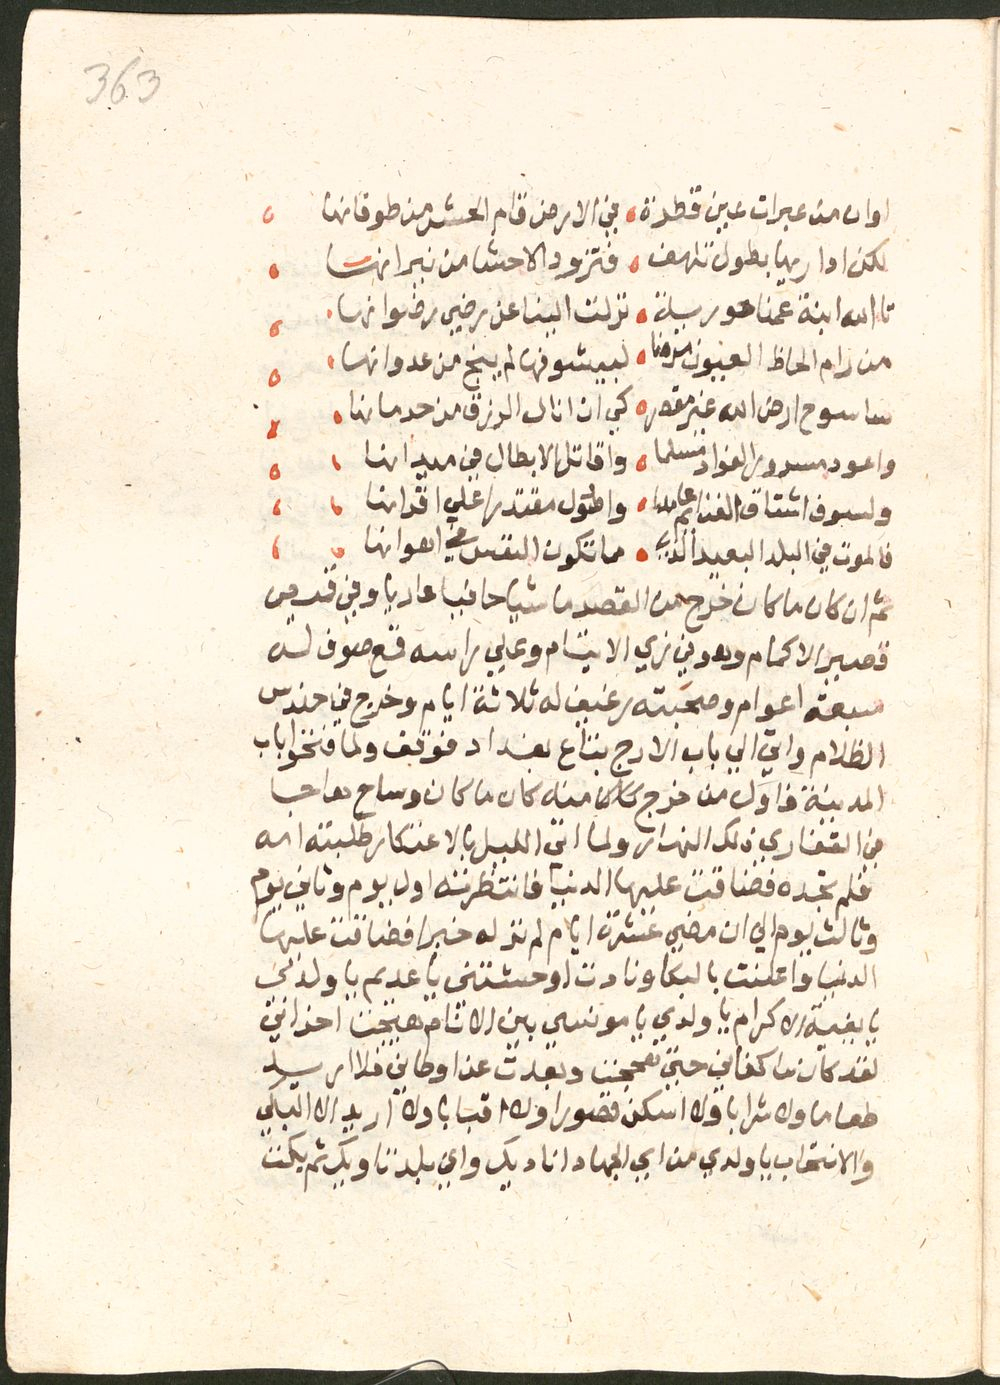 363
لوان من عبرات عين قطرة في الارض قام الحشر من طوفانها
لكن اداريها بطول تلهف فتزود الاحشا من نيرانها
تالله ابنة عمنا حورية نزلت الينا عن رضي رضوانها
من رام الحاظ العيون لبيشوفها لم ينج من عدوانها
ساسوح ارض الله غير مقصر كي ان انال الرزق من حرمانها
واعود مسرور الفواد مسلما واقاتل الابطال في ميدانها
ولسوف اشتاق الغنايم واطول مقتدرا علي اقرانها
فالموت في البلد البعيد مما تكون النفس في اهوانها
ثم ان كان ما كان خرج من القصر ماشيا حافيا عاريا وفي قميص
قصير الاكمام وهو في زي الايتام وعلي راسه قبع صوف له
سبعة اعوام وصحبته رغيف له ثلاثة ايام وخرج في حندس
الظلام واتي الي باب الارج بتاع بغداد فوقف ولما فتحوا باب
المدينة فاول من خرج كان منه كان ما كان وساح هاجا
في القفاري ذلك النهار ولما اتي الليل بالاعتكار طلبته امه
فلم تجده فضاقت عليها الدنيا فانتظرته اول يوم وثاني يوم
وثالث يوم الي ان مضي عشرة ايام لم تر له خبرا فضاقت عليها
الدنيا واعلنت بالبكا ونادت اوحشتني يا عديم يا ولدي
يا بقية الاكرام يا ولدي يا مونسي بين الانام هيجت احزاني
لقد كان ما كفاني حتي هججت وبعدت عن اوطاني فلا اريد
طعاما ولا شرابا ولا اسكن قصورا ولا قبابا ولا اريد الا البكي
والانتحاب يا ولدي من اي الجهاد اناديك واي بلدنا ويك ثم بكت